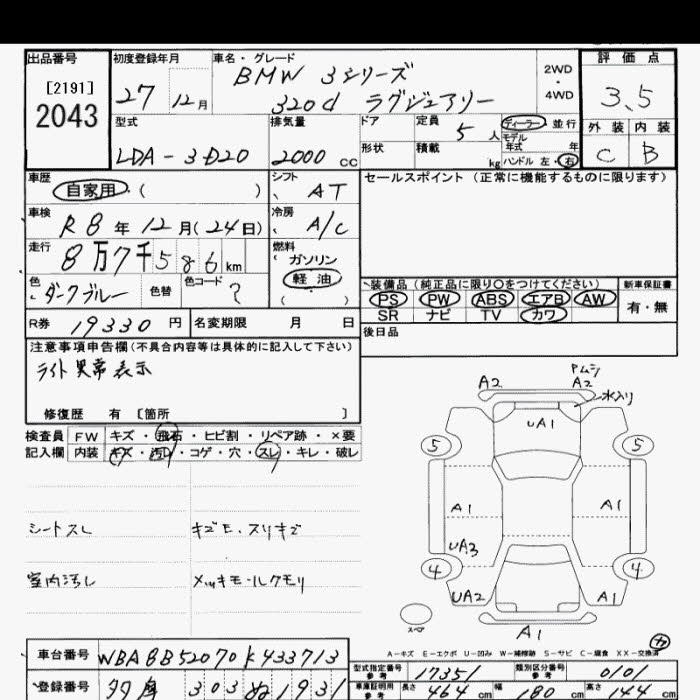 出品番号 初度登録年月 車名・グレード 評価点
[2191] 27 12月 BMW 3シリーズ 2WD・4WD 3.5
2043 320d ラグジュアリー
型式 排気量 ドア 定員 5人 ディーラー・並行 外装 内装
LDA-3D20 2000cc 形状 積載 kg モデル年式 年 ハンドル 左・右 C B
車歴 自家用・( ) シフト AT セールスポイント(正常に機能するものに限ります)
車検 R8年12月(24日) 冷房 A/C
走行 8万7千586km 燃料 ガソリン 軽油 ( )
色 ダークブルー 色替 色コード ?
装備品(純正品に限り○をつけてください) 新車保証書
PS PW ABS エアB AW 有・無
SR ナビ TV カワ
R券 19330円 名変期限 月 日 後日品
注意事項申告欄(不具合内容等は具体的に記入して下さい)
ライト異常表示
修復歴 有 [箇所 ]
検査員 FW キズ・飛石・ヒビ割・リペア跡・×要
記入欄 内装 キズ・汚レ・コゲ・穴・スレ・キレ・破レ
シートスレ キズモ、スリキズ
室内汚し メッキモールクモリ
A2 Pムシ A2
水入り
UA1
5 5
A1 A1
UA3
4 4
UA2 A1
スペア A1
A-キズ E-エクボ U-凹み W-補修跡 S-サビ C-腐食 XX-交換済
カ
車台番号 WBA8B52070K433713
型式指定番号 参考 17351 類別区分番号 参考 0101
登録番号 303 ぬ 1931
車庫証明用 参考 長さ 464cm 幅 180cm 高さ 144cm